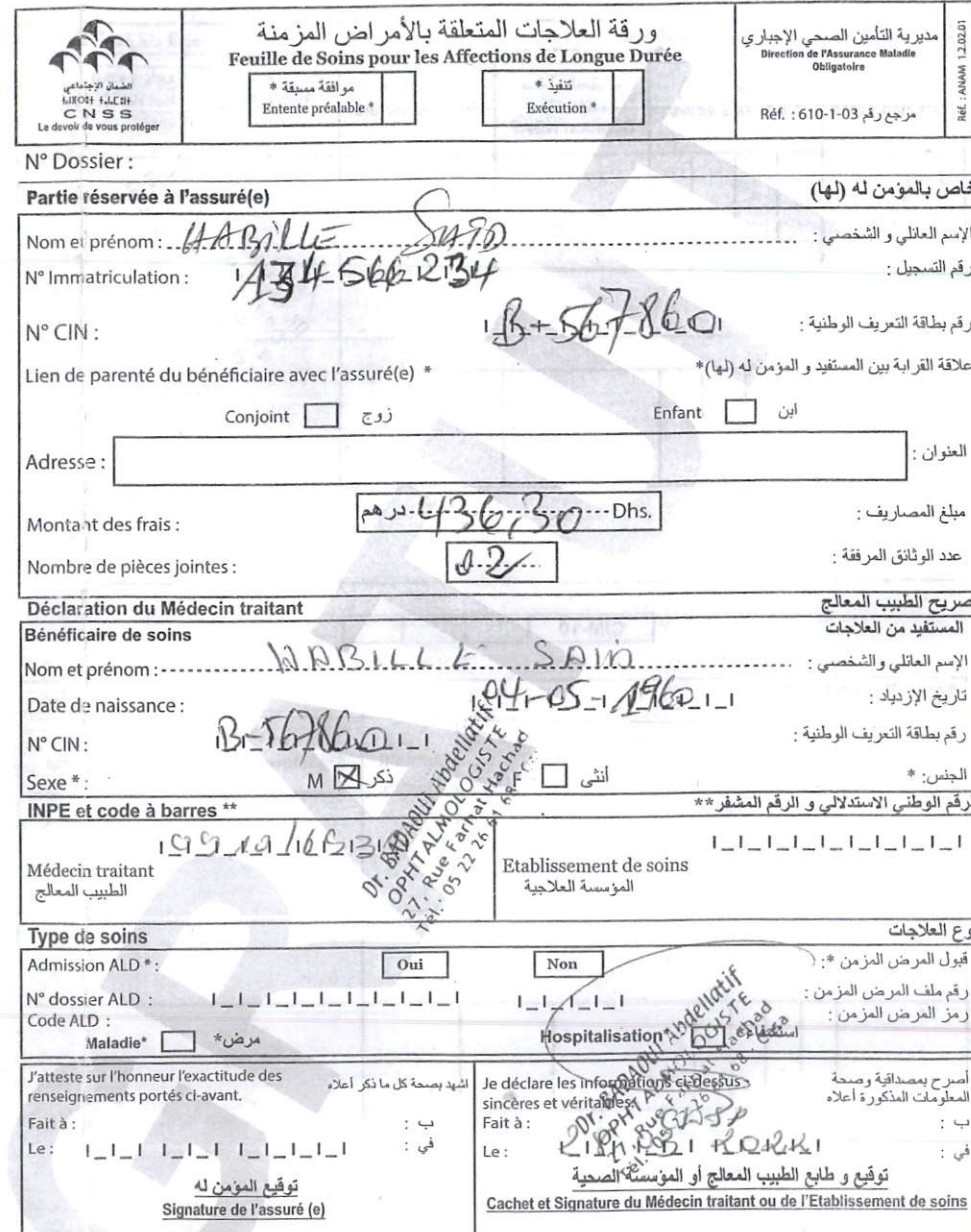 ورقة العلاجات المتعلقة بالأمراض المزمنة
Feuille de Soins pour les Affections de Longue Durée
الضمان الإجتماعي
CNSS
Le devoir de vous protéger
موافقة مسبقة *
Entente préalable *
تنفيذ *
Exécution *
مديرية التأمين الصحي الإجباري
Direction de l'Assurance Maladie
Obligatoire
مرجع رقم Réf. : 610-1-03
Réf. : ANAM 1.2.02.01
N° Dossier :
Partie réservée à l'assuré(e) خاص بالمؤمن له (لها)
Nom et prénom : HABILLE SAID الإسم العائلي و الشخصي :
N° Immatriculation : 134566234 رقم التسجيل :
N° CIN : B-567860 رقم بطاقة التعريف الوطنية :
Lien de parenté du bénéficiaire avec l'assuré(e) * علاقة القرابة بين المستفيد و المؤمن له (لها)*
Conjoint زوج Enfant ابن
Adresse : العنوان :
Montant des frais : 436,30 Dhs. درهم مبلغ المصاريف :
Nombre de pièces jointes : 02 عدد الوثائق المرفقة :
Déclaration du Médecin traitant صريح الطبيب المعالج
Bénéficaire de soins المستفيد من العلاجات
Nom et prénom : HABILLE SAID الإسم العائلي والشخصي :
Date de naissance : 04-05-1960 تاريخ الإزدياد :
N° CIN : B-567860 رقم بطاقة التعريف الوطنية :
Sexe * : M ذكر F أنثى الجنس: *
INPE et code à barres ** رقم الوطني الاستدلالي و الرقم المشفر**
Médecin traitant
الطبيب المعالج
Etablissement de soins
المؤسسة العلاجية
Dr. BADAOUI Abdellatif
OPHTALMOLOGISTE
27, Rue Farhat Hachad
Tél.: 05 22 26 61 68
Type de soins وع العلاجات
Admission ALD * : Oui Non قبول المرض المزمن *:
N° dossier ALD : رقم ملف المرض المزمن :
Code ALD : رمز المرض المزمن :
Maladie* مرض* Hospitalisation* استشفاء
Dr. BADAOUI Abdellatif
OPHTALMOLOGISTE
27, Rue Farhat Hachad
J'atteste sur l'honneur l'exactitude des
renseignements portés ci-avant.
اشهد بصحة كل ما ذكر أعلاه
Fait à : ب :
Le : في :
توقيع المؤمن له
Signature de l'assuré (e)
Je déclare les informations ci-dessus
sincères et véritables.
أصرح بمصداقية وصحة
المعلومات المذكورة أعلاه
Fait à : ب :
Le : في :
توقيع و طابع الطبيب المعالج أو المؤسسة الصحية
Cachet et Signature du Médecin traitant ou de l'Etablissement de soins
GRATUIT